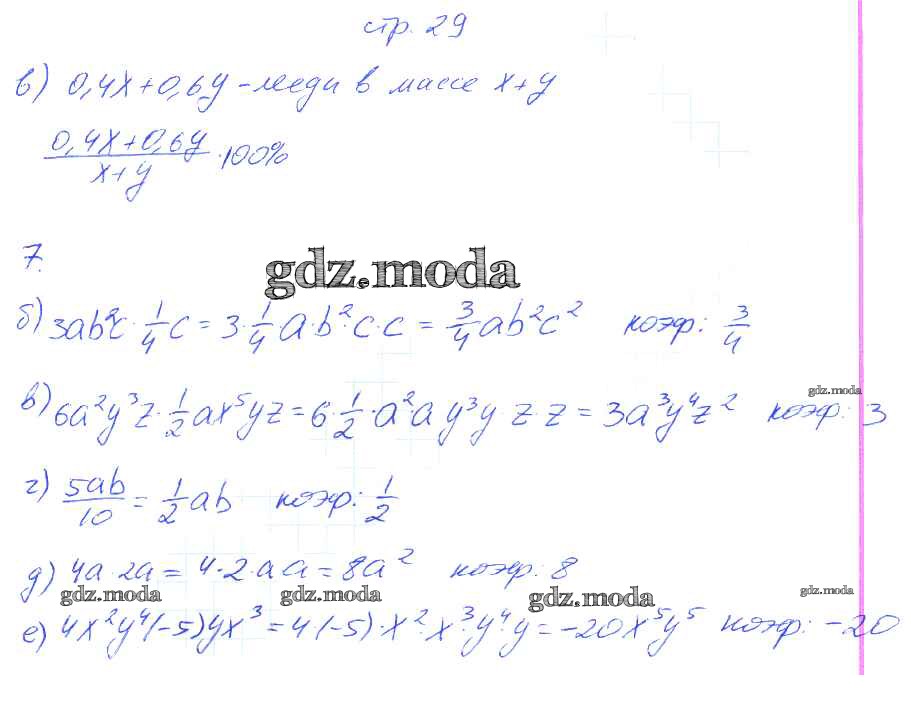 стр. 29
в) 0,4x+0,6y - меди в массе x+y
(0,4x+0,6y)/(x+y) · 100%
7.
gdz.moda
б) 3ab²c · 1/4 c = 3 · 1/4 a · b² · c · c = 3/4 ab²c² коэф: 3/4
gdz.moda
в) 6a²y³z · 1/2 ax⁵yz = 6 · 1/2 · a²a y³y z · z = 3a³y⁴z² коэф: 3
г) 5ab/10 = 1/2 ab коэф: 1/2
д) 4a · 2a = 4 · 2 · a a = 8a² коэф: 8
gdz.moda gdz.moda gdz.moda gdz.moda
е) 4x²y⁴(-5)yx³ = 4(-5) · x² · x³ · y⁴ · y = -20x⁵y⁵ коэф: -20